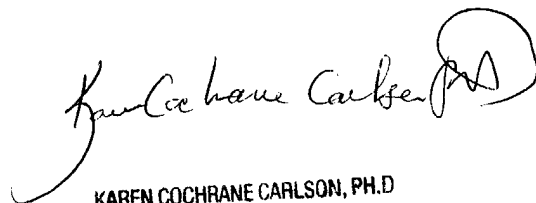 Karen Cochrane Carlsen PhD
KAREN COCHRANE CARLSON, PH.D